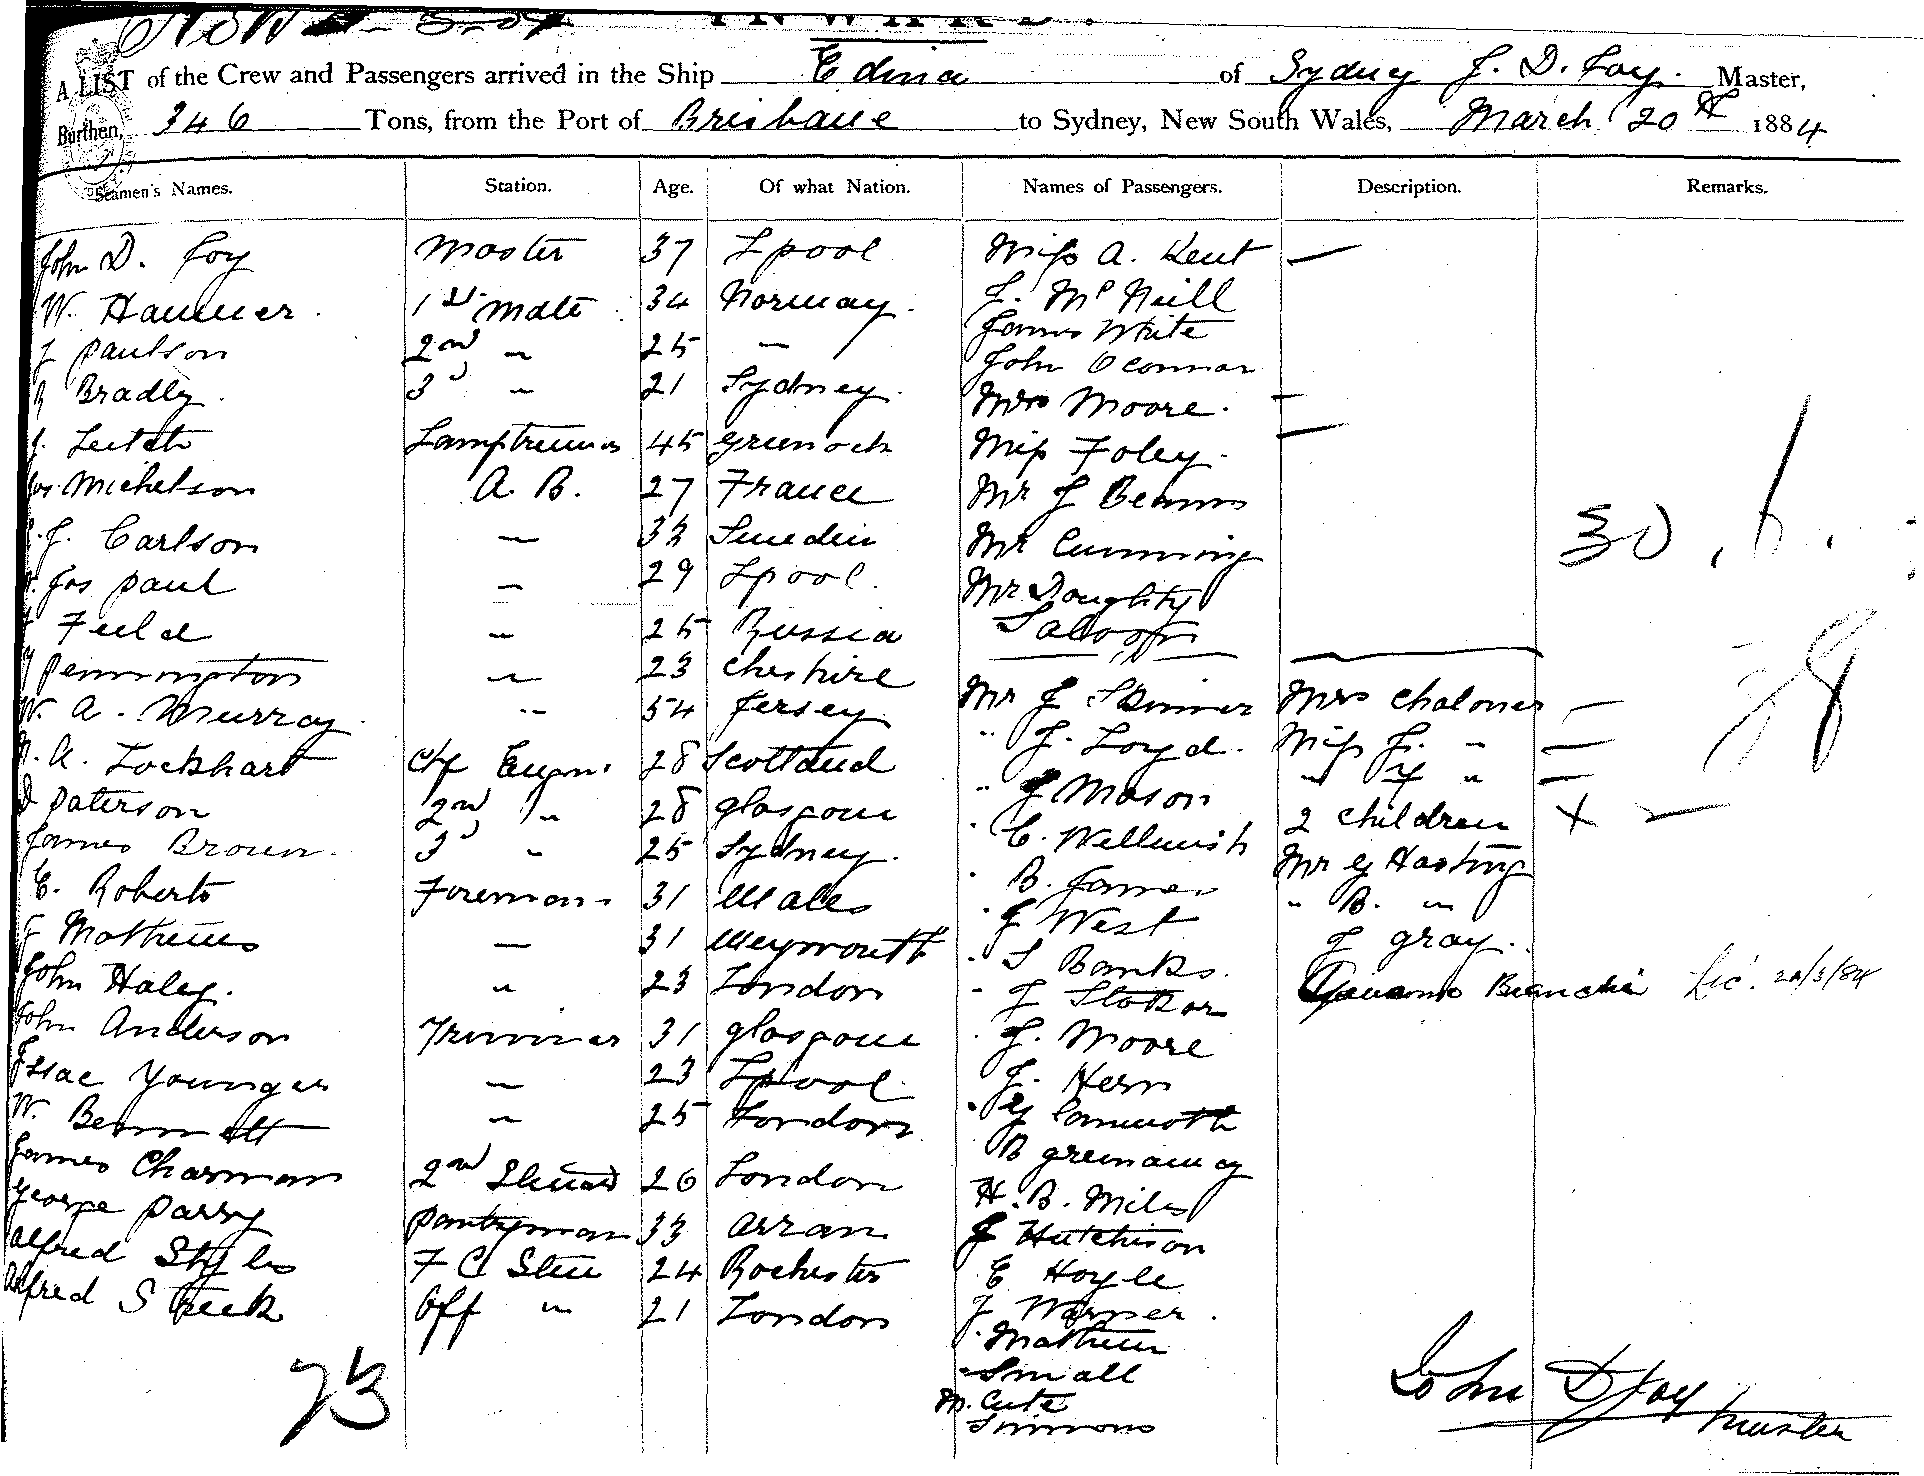 INWARD.
A LIST of the Crew and Passengers arrived in the Ship Edina of Sydney J. D. Foy. Master,
Burthen, 346 Tons, from the Port of Brisbane to Sydney, New South Wales, March 20th 1884
Seamen's Names. Station. Age. Of what Nation. Names of Passengers. Description. Remarks.
John D. Foy Master 37 Lpool Miss A. Kent —
W. Hammer. 1st Mate 34 Norway. J. McNeill
James White
J Paulson 2nd " 25 — John OConnor
Bradly. 3d " 21 Sydney. Mrs Moore. —
J. Leitch Lamptrimmer 45 Greenock Miss Foley. —
Jas. Michelson A. B. 27 France Mr J Beams
J. Carlson — 32 Sweden Mr Cumming 30
Jas Paul — 29 Lpool. Mr Doughty
Feild " 25 Russia Saloon
Pennington " 23 Cheshire Mr J Skinner Mrs Chaloner —
W. A. Murray. " 54 Jersey. " J. Loyd. Miss J. " —
A. Lockhart Chf Engnr. 28 Scotland " J Mason " " —
D Paterson 2nd " 28 Glasgow " C. 2 Children x —
James Brown. 3d " 25 Sydney. " B. James Mr G Hastings
E. Roberts Foreman 31 Wales " J West " B. "
J Mathews — 31 Weymouth " S Banks. J Gray.
John Haley. " 23 London " J Bianchi Lic. 20/3/84
John Anderson Trimmer 31 Glasgow " J. Moore
Isaac Younger — 23 Lpool. J. Hern
W. Bennett " 25 London " G
B Greenaway
James Charman 2nd Steward 26 London H. B. Miles
George Parry Pantryman 33 Arran J Hutchison
Alfred Styles F C Stew 24 Rochester E Hoyle
Alfred Streek Off " 21 London J Warner.
" Mathew
" Small
M. Cute
Simmons
73
John D Foy Master